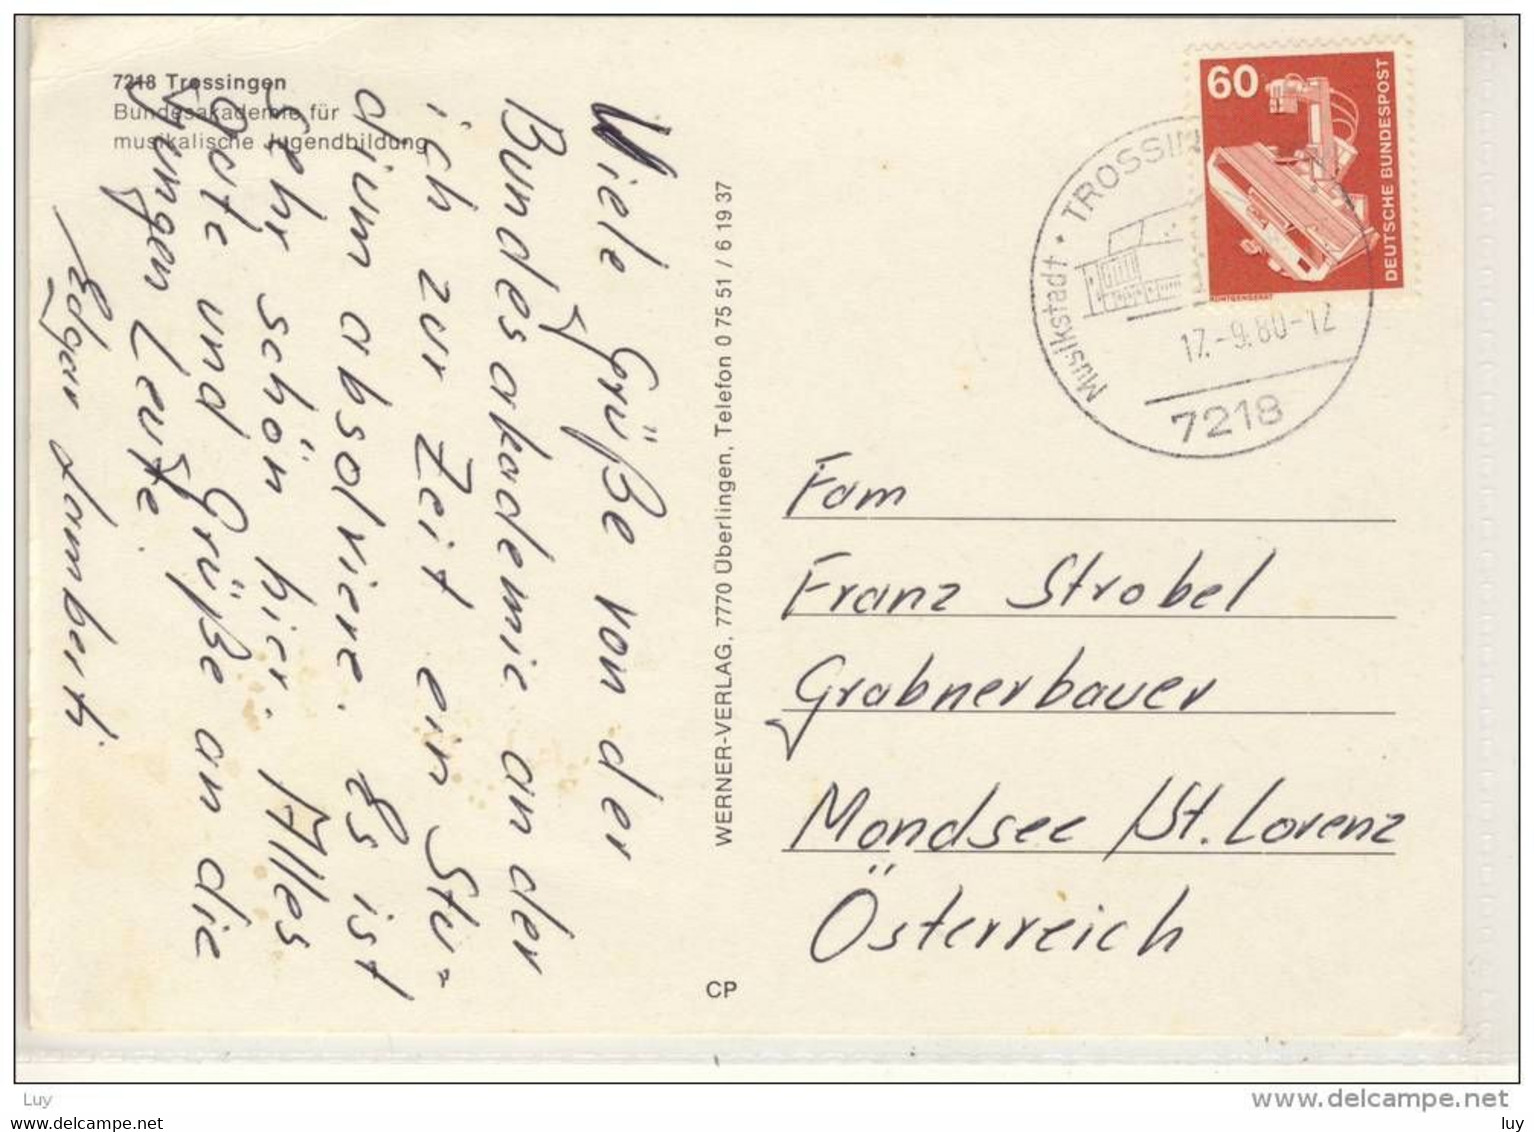 7218 Trossingen
Bundesakademie für
musikalische Jugendbildung
Viele Grüße von der
Bundesakademie an der
ich zur Zeit ein Stu-
dium absolviere. Es ist
sehr schön hier. Alles
Gute und Grüße an die
jungen Leute.
Edgar Lambert
WERNER-VERLAG, 7770 Überlingen, Telefon 0 75 51 / 6 19 37
CP
60
DEUTSCHE BUNDESPOST
Musikstadt · TROSSIN
17.-9.80-12
7218
Fam
Franz Strobel
Grabnerbauer
Mondsee /St. Lorenz
Österreich
Luy
www.delcampe.net
www.delcampe.net
luy